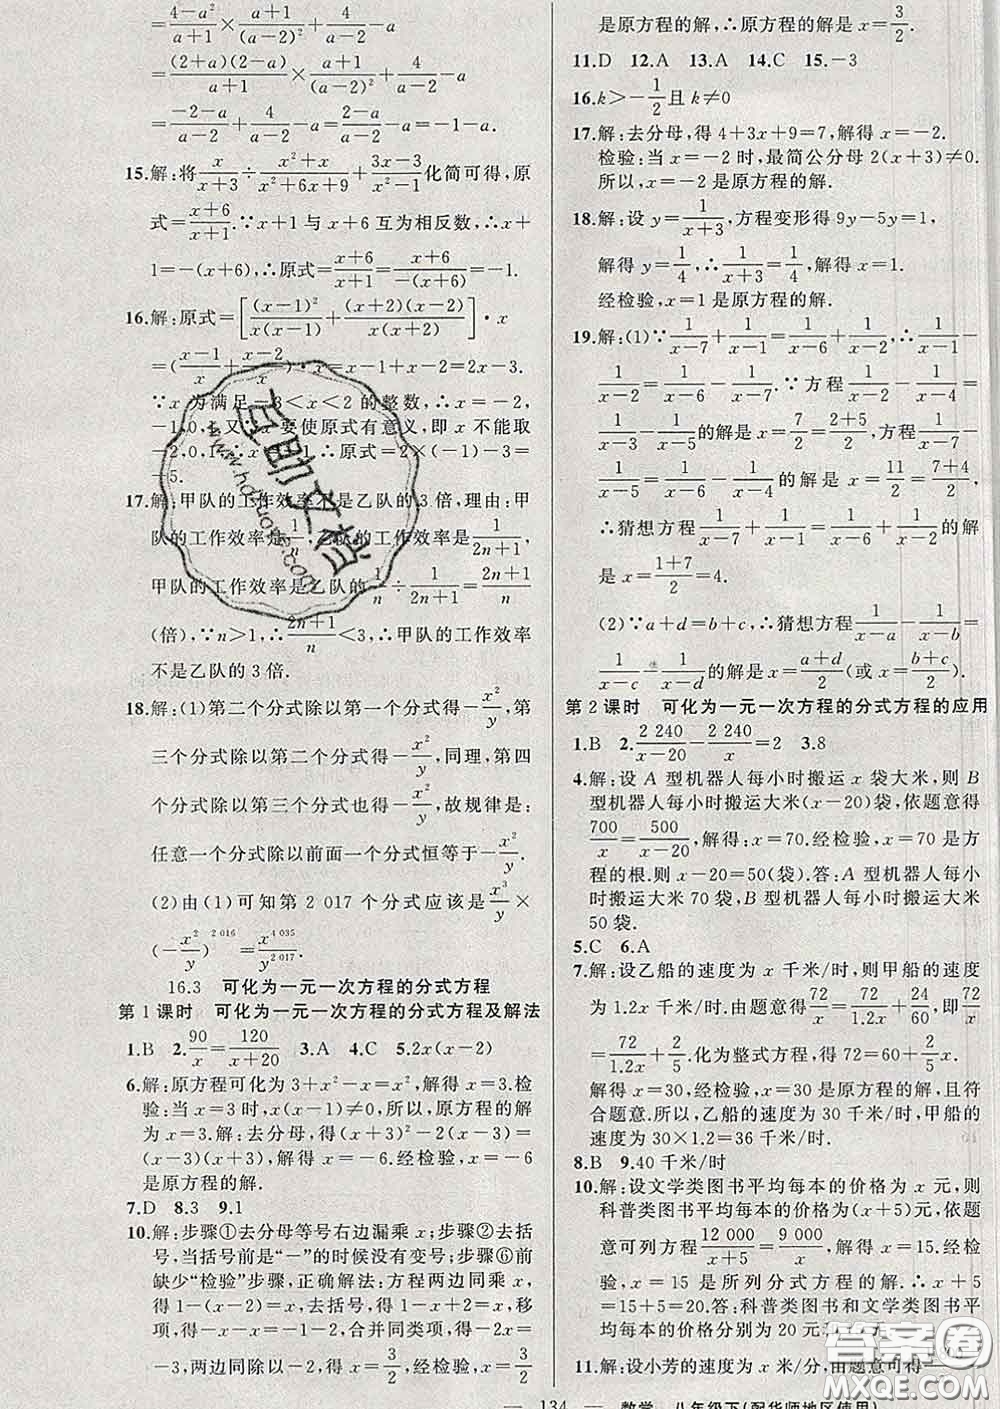 =\frac{4-a^2}{a+1}×\frac{a+1}{(a-2)^2}+\frac{4}{a-2}-a
=\frac{(2+a)(2-a)}{a+1}×\frac{a+1}{(a-2)^2}+\frac{4}{a-2}-a
=\frac{-2-a}{a-2}+\frac{4}{a-2}-a=\frac{2-a}{a-2}-a=-1-a.
15.解:将\frac{x}{x+3}÷\frac{x^2+x}{x^2+6x+9}+\frac{3x-3}{x^2-1}化简可得,原
式=\frac{x+6}{x+1}.∵x+1与x+6互为相反数,∴x+
1=-(x+6),∴原式=\frac{x+6}{x+1}=\frac{x+6}{-(x+6)}=-1.
16.解:原式=[\frac{(x-1)^2}{x(x-1)}+\frac{(x+2)(x-2)}{x(x+2)}]·x
=(\frac{x-1}{x}+\frac{x-2}{x})·x=x-1+x-2=2x-3.
∵x为满足-3<x<2的整数,∴x=-2,
-1,0,1.又∵x要使原式有意义,即x不能取
-2,0,1,∴x=-1.∴原式=2×(-1)-3=
-5.
17.解:甲队的工作效率不是乙队的3倍,理由:甲
队的工作效率是\frac{1}{n},乙队的工作效率是\frac{1}{2n+1},
甲队的工作效率是乙队的\frac{1}{n}÷\frac{1}{2n+1}=\frac{2n+1}{n}
(倍),∵n>1,∴\frac{2n+1}{n}<3,∴甲队的工作效率
不是乙队的3倍.
18.解:(1)第二个分式除以第一个分式得-\frac{x^2}{y},第
三个分式除以第二个分式得-\frac{x^2}{y},同理,第四
个分式除以第三个分式也得-\frac{x^2}{y},故规律是:
任意一个分式除以前面一个分式恒等于-\frac{x^2}{y}.
(2)由(1)可知第2 017个分式应该是\frac{x^3}{y}×
(-\frac{x^2}{y})^{2 016}=\frac{x^{4 035}}{y^{2 017}}.
16.3 可化为一元一次方程的分式方程
第1课时 可化为一元一次方程的分式方程及解法
1.B 2.\frac{90}{x}=\frac{120}{x+20} 3.A 4.C 5.2x(x-2)
6.解:原方程可化为3+x^2-x=x^2.解得x=3.检
验:当x=3时,x(x-1)≠0,所以,原方程的解
为x=3.解:去分母,得(x-3)^2-2(x-3)=
(x-3)(x+3),解得x=-6.经检验,x=-6
是原方程的解.
7.D 8.3 9.1
10.解:步骤①去分母等号右边漏乘x;步骤②去括
号,当括号前是“-”的时候没有变号;步骤⑥前
缺少“检验”步骤,正确解法:方程两边同乘x,
得1-(x-2)=x,去括号,得1-x+2=x,移
项,得-x-x=-1-2,合并同类项,得-2x=
-3,两边同除以-2,得x=\frac{3}{2},经检验,x=\frac{3}{2}
是原方程的解,∴原方程的解是x=\frac{3}{2}.
11.D 12.A 13.A 14.C 15.-3
16.k>-\frac{1}{2}且k≠0
17.解:去分母,得4+3x+9=7,解得x=-2.
检验:当x=-2时,最简公分母2(x+3)≠0.
所以,x=-2是原方程的解.
18.解:设y=\frac{1}{x+3},方程变形得9y-5y=1,
解得y=\frac{1}{4},∴\frac{1}{x+3}=\frac{1}{4},解得x=1.
经检验,x=1是原方程的解.
19.解:(1)∵\frac{1}{x-7}+\frac{1}{x-1}=\frac{1}{x-6}+\frac{1}{x-2},∴\frac{1}{x-1}-
\frac{1}{x-2}=\frac{1}{x-6}-\frac{1}{x-7}.∵方程\frac{1}{x-2}-\frac{1}{x-4}=
\frac{1}{x-3}-\frac{1}{x-5}的解是x=\frac{7}{2}=\frac{2+5}{2},方程\frac{1}{x-7}-
\frac{1}{x-5}=\frac{1}{x-6}-\frac{1}{x-4}的解是x=\frac{11}{2}=\frac{7+4}{2},
∴猜想方程\frac{1}{x-7}+\frac{1}{x-1}=\frac{1}{x-6}+\frac{1}{x-2}的解
是x=\frac{1+7}{2}=4.
(2)∵a+d=b+c,∴猜想方程\frac{1}{x-a}-\frac{1}{x-b}=
\frac{1}{x-c}-\frac{1}{x-d}的解是x=\frac{a+d}{2}(或x=\frac{b+c}{2}).
第2课时 可化为一元一次方程的分式方程的应用
1.B 2.\frac{2 240}{x-20}-\frac{2 240}{x}=2 3.8
4.解:设A型机器人每小时搬运x袋大米,则B
型机器人每小时搬运大米(x-20)袋,依题意得
\frac{700}{x}=\frac{500}{x-20},解得:x=70.经检验,x=70是方
程的根.则x-20=50(袋).答:A型机器人每小
时搬运大米70袋,B型机器人每小时搬运大米
50袋.
5.C 6.A
7.解:设乙船的速度为x千米/时,则甲船的速度
为1.2x千米/时,由题意得\frac{72}{x}=\frac{72}{1.2x}+\frac{24}{60},即\frac{72}{x}
=\frac{72}{1.2x}+\frac{2}{5}.化为整式方程,得72=60+\frac{2}{5}x.
解得x=30,经检验,x=30是原方程的解,且符
合题意.所以,乙船的速度为30千米/时,甲船的
速度为30×1.2=36千米/时.
8.B 9.40千米/时
10.解:设文学类图书平均每本的价格为x元,则
科普类图书平均每本的价格为(x+5)元,依题
意可列方程\frac{12 000}{x+5}=\frac{9 000}{x},解得x=15,经
检验,x=15是所列分式方程的解.∴x+5
=15+5=20.答:科普类图书和文学类图书平
均每本的价格分别为20元
11.解:设小芳的速度为x米/分,由题意可得
— 134 — 数学 八年级下(配华师地区使用)
互助文档
答案圈
MXQE.COM